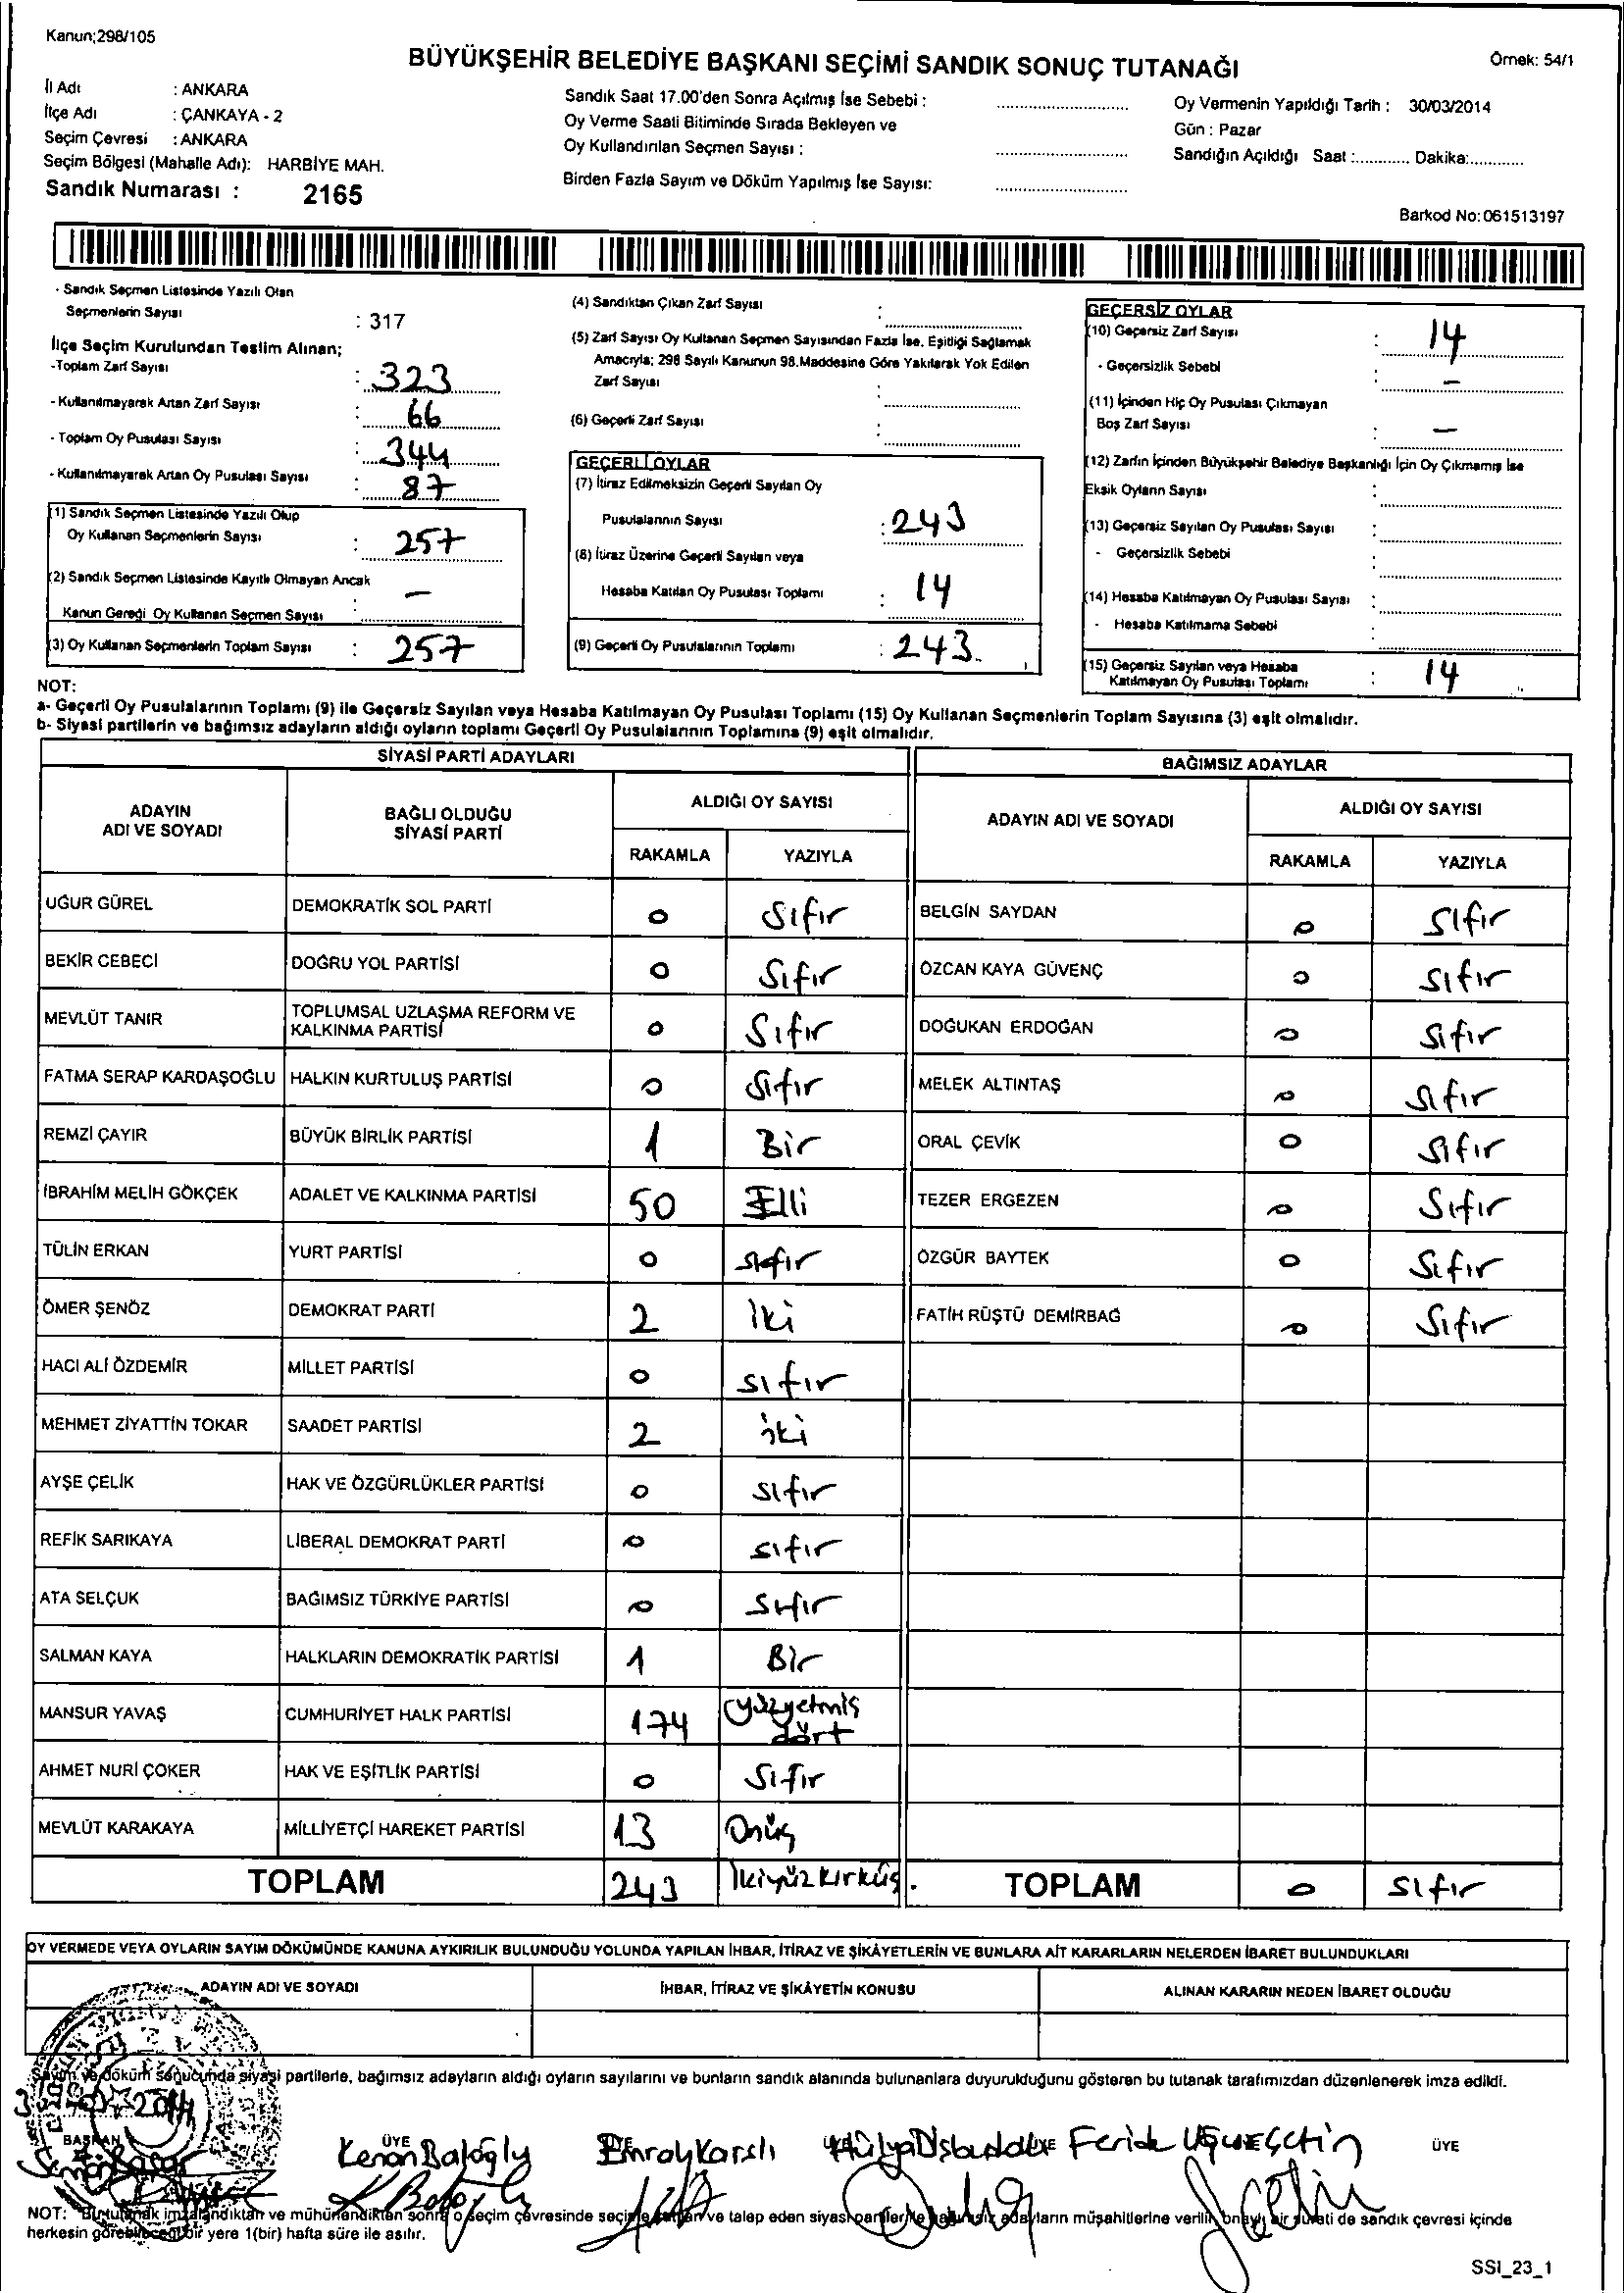 Kanun;298/105
BÜYÜKŞEHİR BELEDİYE BAŞKANI SEÇİMİ SANDIK SONUÇ TUTANAĞI
Örnek: 54/1
İl Adı : ANKARA
İlçe Adı : ÇANKAYA - 2
Seçim Çevresi : ANKARA
Seçim Bölgesi (Mahalle Adı): HARBİYE MAH.
Sandık Numarası : 2165
Sandık Saat 17.00'den Sonra Açılmış İse Sebebi :
Oy Verme Saati Bitiminde Sırada Bekleyen ve
Oy Kullandırılan Seçmen Sayısı :
Birden Fazla Sayım ve Döküm Yapılmış İse Sayısı:
Oy Vermenin Yapıldığı Tarih : 30/03/2014
Gün : Pazar
Sandığın Açıldığı Saat :............ Dakika:............
Barkod No:061513197
- Sandık Seçmen Listesinde Yazılı Olan
Seçmenlerin Sayısı : 317
İlçe Seçim Kurulundan Teslim Alınan;
-Toplam Zarf Sayısı : 323
- Kullanılmayarak Artan Zarf Sayısı : 66
- Toplam Oy Pusulası Sayısı : 344
- Kullanılmayarak Artan Oy Pusulası Sayısı : 87
(1) Sandık Seçmen Listesinde Yazılı Olup
Oy Kullanan Seçmenlerin Sayısı : 257
(2) Sandık Seçmen Listesinde Kayıtlı Olmayan Ancak
Kanun Gereği Oy Kullanan Seçmen Sayısı : -
(3) Oy Kullanan Seçmenlerin Toplam Sayısı : 257
(4) Sandıktan Çıkan Zarf Sayısı :
(5) Zarf Sayısı Oy Kullanan Seçmen Sayısından Fazla İse, Eşitliği Sağlamak
Amacıyla; 298 Sayılı Kanunun 98.Maddesine Göre Yakılarak Yok Edilen
Zarf Sayısı :
(6) Geçerli Zarf Sayısı :
GEÇERLİ OYLAR
(7) İtiraz Edilmeksizin Geçerli Sayılan Oy
Pusulalarının Sayısı : 243
(8) İtiraz Üzerine Geçerli Sayılan veya
Hesaba Katılan Oy Pusulası Toplamı : 14
(9) Geçerli Oy Pusulalarının Toplamı : 243.
GEÇERSİZ OYLAR
(10) Geçersiz Zarf Sayısı : 14
- Geçersizlik Sebebi : -
(11) İçinden Hiç Oy Pusulası Çıkmayan
Boş Zarf Sayısı : -
(12) Zarfın İçinden Büyükşehir Belediye Başkanlığı İçin Oy Çıkmamış İse
Eksik Oyların Sayısı :
(13) Geçersiz Sayılan Oy Pusulası Sayısı :
- Geçersizlik Sebebi :
(14) Hesaba Katılmayan Oy Pusulası Sayısı :
- Hesaba Katılmama Sebebi :
(15) Geçersiz Sayılan veya Hesaba
Katılmayan Oy Pusulası Toplamı : 14
NOT:
a- Geçerli Oy Pusulalarının Toplamı (9) ile Geçersiz Sayılan veya Hesaba Katılmayan Oy Pusulası Toplamı (15) Oy Kullanan Seçmenlerin Toplam Sayısına (3) eşit olmalıdır.
b- Siyasi partilerin ve bağımsız adayların aldığı oyların toplamı Geçerli Oy Pusulalarının Toplamına (9) eşit olmalıdır.
SİYASİ PARTİ ADAYLARI
ADAYIN ADI VE SOYADI BAĞLI OLDUĞU SİYASİ PARTİ ALDIĞI OY SAYISI
RAKAMLA YAZIYLA
UĞUR GÜREL DEMOKRATİK SOL PARTİ 0 Sıfır
BEKİR CEBECİ DOĞRU YOL PARTİSİ 0 Sıfır
MEVLÜT TANIR TOPLUMSAL UZLAŞMA REFORM VE KALKINMA PARTİSİ 0 Sıfır
FATMA SERAP KARDAŞOĞLU HALKIN KURTULUŞ PARTİSİ 0 Sıfır
REMZİ ÇAYIR BÜYÜK BİRLİK PARTİSİ 1 Bir
İBRAHİM MELİH GÖKÇEK ADALET VE KALKINMA PARTİSİ 50 Elli
TÜLİN ERKAN YURT PARTİSİ 0 sıfır
ÖMER ŞENÖZ DEMOKRAT PARTİ 2 İki
HACI ALİ ÖZDEMİR MİLLET PARTİSİ 0 sıfır
MEHMET ZİYATTİN TOKAR SAADET PARTİSİ 2 iki
AYŞE ÇELİK HAK VE ÖZGÜRLÜKLER PARTİSİ 0 sıfır
REFİK SARIKAYA LİBERAL DEMOKRAT PARTİ 0 sıfır
ATA SELÇUK BAĞIMSIZ TÜRKİYE PARTİSİ 0 Sıfır
SALMAN KAYA HALKLARIN DEMOKRATİK PARTİSİ 1 Bir
MANSUR YAVAŞ CUMHURİYET HALK PARTİSİ 174 yüzyetmiş dört
AHMET NURİ ÇOKER HAK VE EŞİTLİK PARTİSİ 0 Sıfır
MEVLÜT KARAKAYA MİLLİYETÇİ HAREKET PARTİSİ 13 Onüç
TOPLAM 243 İkiyüzkırküç.
BAĞIMSIZ ADAYLAR
ADAYIN ADI VE SOYADI ALDIĞI OY SAYISI
RAKAMLA YAZIYLA
BELGİN SAYDAN 0 Sıfır
ÖZCAN KAYA GÜVENÇ 0 sıfır
DOĞUKAN ERDOĞAN 0 Sıfır
MELEK ALTINTAŞ 0 Sıfır
ORAL ÇEVİK 0 Sıfır
TEZER ERGEZEN 0 Sıfır
ÖZGÜR BAYTEK 0 Sıfır
FATİH RÜŞTÜ DEMİRBAĞ 0 Sıfır
TOPLAM 0 sıfır
OY VERMEDE VEYA OYLARIN SAYIM DÖKÜMÜNDE KANUNA AYKIRILIK BULUNDUĞU YOLUNDA YAPILAN İHBAR, İTİRAZ VE ŞİKÂYETLERİN VE BUNLARA AİT KARARLARIN NELERDEN İBARET BULUNDUKLARI
ADAYIN ADI VE SOYADI İHBAR, İTİRAZ VE ŞİKÂYETİN KONUSU ALINAN KARARIN NEDEN İBARET OLDUĞU
Sayım ve döküm sonucunda siyasi partilerle, bağımsız adayların aldığı oyların sayılarını ve bunların sandık alanında bulunanlara duyurulduğunu gösteren bu tutanak tarafımızdan düzenlenerek imza edildi.
2014
BAŞKAN ÜYE ÜYE
Kenan Baloğlu Emray Karslı Feride Uğur Çetin
NOT: Bu tutanak imzalandıktan ve mühürlendikten sonra o seçim çevresinde seçime katılan ve talep eden siyasi partiler ile bağımsız adayların müşahitlerine verilir, onaylı bir sureti de sandık çevresi içinde
herkesin görebileceği bir yere 1(bir) hafta süre ile asılır.
SSI_23_1